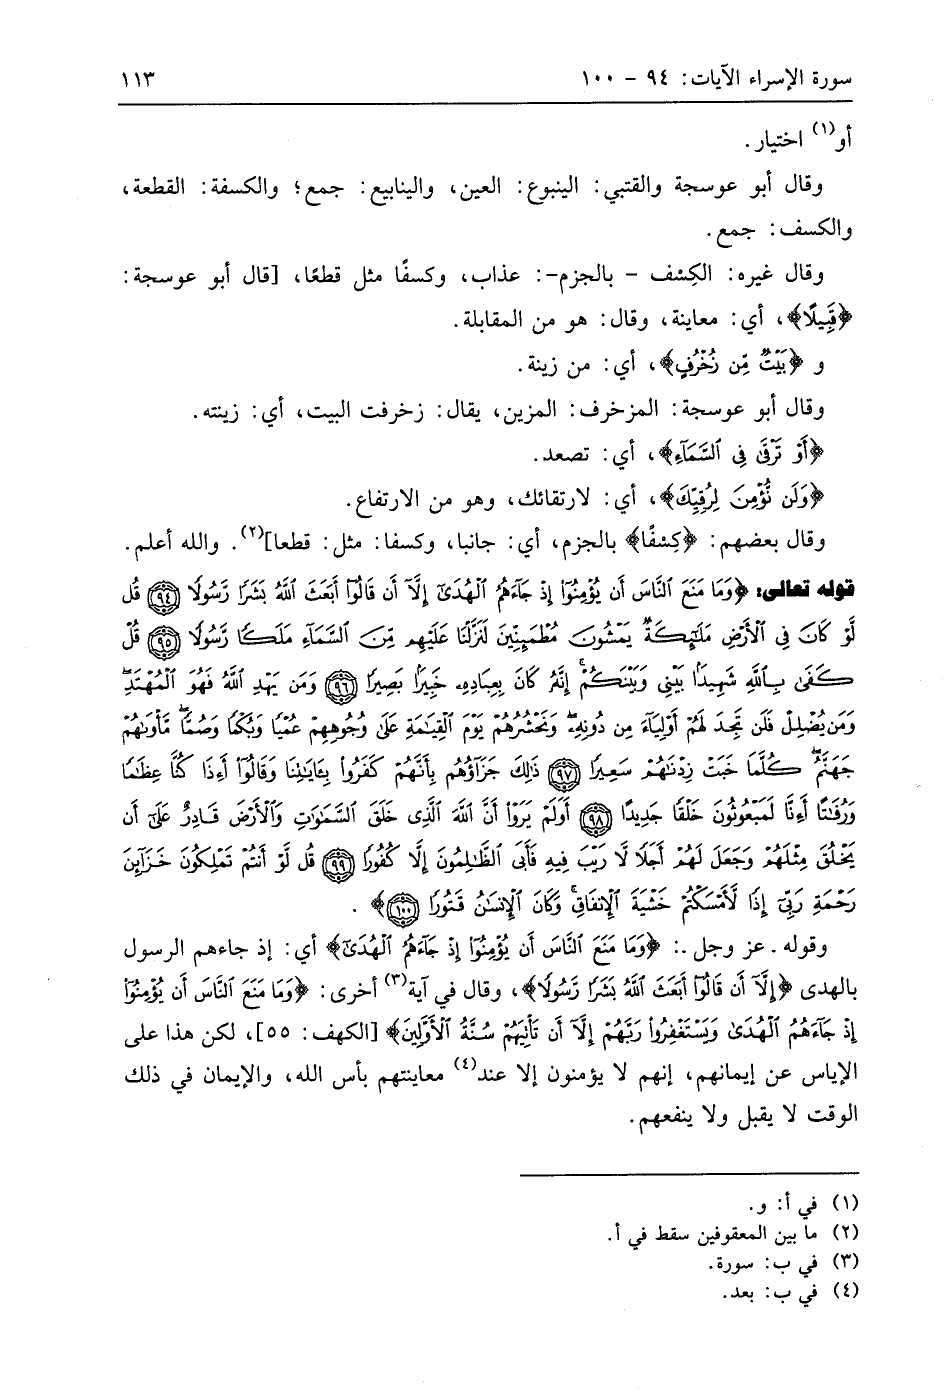 سورة الإسراء الآيات: ٩٤ - ١٠٠ ١١٣
أو(١) اختيار.
وقال أبو عوسجة والقتبي: الينبوع: العين، والينابيع: جمع؛ والكسفة: القطعة،
والكسف: جمع.
وقال غيره: الكِسْف - بالجزم-: عذاب، وكسفًا مثل قطعًا، [قال أبو عوسجة:
﴿قَبِيلًا﴾، أي: معاينة، وقال: هو من المقابلة.
و ﴿بَيْتٌ مِّن زُخْرُفٍ﴾، أي: من زينة.
وقال أبو عوسجة: المزخرف: المزين، يقال: زخرفت البيت، أي: زينته.
﴿أَوْ تَرْقَىٰ فِى ٱلسَّمَآءِ﴾، أي: تصعد.
﴿وَلَن نُّؤْمِنَ لِرُقِيِّكَ﴾، أي: لارتقائك، وهو من الارتفاع.
وقال بعضهم: ﴿كِسْفًا﴾ بالجزم، أي: جانبا، وكسفا: مثل: قطعا](٢). والله أعلم.
قوله تعالى: ﴿وَمَا مَنَعَ ٱلنَّاسَ أَن يُؤْمِنُوٓا۟ إِذْ جَآءَهُمُ ٱلْهُدَىٰٓ إِلَّآ أَن قَالُوٓا۟ أَبَعَثَ ٱللَّهُ بَشَرًا رَّسُولًا ٩٤ قُل
لَّوْ كَانَ فِى ٱلْأَرْضِ مَلَٰٓئِكَةٌ يَمْشُونَ مُطْمَئِنِّينَ لَنَزَّلْنَا عَلَيْهِم مِّنَ ٱلسَّمَآءِ مَلَكًا رَّسُولًا ٩٥ قُلْ
كَفَىٰ بِٱللَّهِ شَهِيدًۢا بَيْنِى وَبَيْنَكُمْ إِنَّهُۥ كَانَ بِعِبَادِهِۦ خَبِيرًۢا بَصِيرًا ٩٦ وَمَن يَهْدِ ٱللَّهُ فَهُوَ ٱلْمُهْتَدِ
وَمَن يُضْلِلْ فَلَن تَجِدَ لَهُمْ أَوْلِيَآءَ مِن دُونِهِۦ وَنَحْشُرُهُمْ يَوْمَ ٱلْقِيَٰمَةِ عَلَىٰ وُجُوهِهِمْ عُمْيًا وَبُكْمًا وَصُمًّا مَّأْوَىٰهُمْ
جَهَنَّمُ كُلَّمَا خَبَتْ زِدْنَٰهُمْ سَعِيرًا ٩٧ ذَٰلِكَ جَزَآؤُهُم بِأَنَّهُمْ كَفَرُوا۟ بِـَٔايَٰتِنَا وَقَالُوٓا۟ أَءِذَا كُنَّا عِظَٰمًا
وَرُفَٰتًا أَءِنَّا لَمَبْعُوثُونَ خَلْقًا جَدِيدًا ٩٨ أَوَلَمْ يَرَوْا۟ أَنَّ ٱللَّهَ ٱلَّذِى خَلَقَ ٱلسَّمَٰوَٰتِ وَٱلْأَرْضَ قَادِرٌ عَلَىٰٓ أَن
يَخْلُقَ مِثْلَهُمْ وَجَعَلَ لَهُمْ أَجَلًا لَّا رَيْبَ فِيهِ فَأَبَى ٱلظَّٰلِمُونَ إِلَّا كُفُورًا ٩٩ قُل لَّوْ أَنتُمْ تَمْلِكُونَ خَزَآئِنَ
رَحْمَةِ رَبِّىٓ إِذًا لَّأَمْسَكْتُمْ خَشْيَةَ ٱلْإِنفَاقِ وَكَانَ ٱلْإِنسَٰنُ قَتُورًا ١٠٠﴾.
وقوله - عز وجل -: ﴿وَمَا مَنَعَ ٱلنَّاسَ أَن يُؤْمِنُوٓا۟ إِذْ جَآءَهُمُ ٱلْهُدَىٰٓ﴾ أي: إذ جاءهم الرسول
بالهدى ﴿إِلَّآ أَن قَالُوٓا۟ أَبَعَثَ ٱللَّهُ بَشَرًا رَّسُولًا﴾، وقال في آية(٣) أخرى: ﴿وَمَا مَنَعَ ٱلنَّاسَ أَن يُؤْمِنُوٓا۟
إِذْ جَآءَهُمُ ٱلْهُدَىٰ وَيَسْتَغْفِرُوا۟ رَبَّهُمْ إِلَّآ أَن تَأْتِيَهُمْ سُنَّةُ ٱلْأَوَّلِينَ﴾ [الكهف: ٥٥]، لكن هذا على
الإياس عن إيمانهم، إنهم لا يؤمنون إلا عند(٤) معاينتهم بأس الله، والإيمان في ذلك
الوقت لا يقبل ولا ينفعهم.
(١) في أ: و.
(٢) ما بين المعقوفين سقط في أ.
(٣) في ب: سورة.
(٤) في ب: بعد.